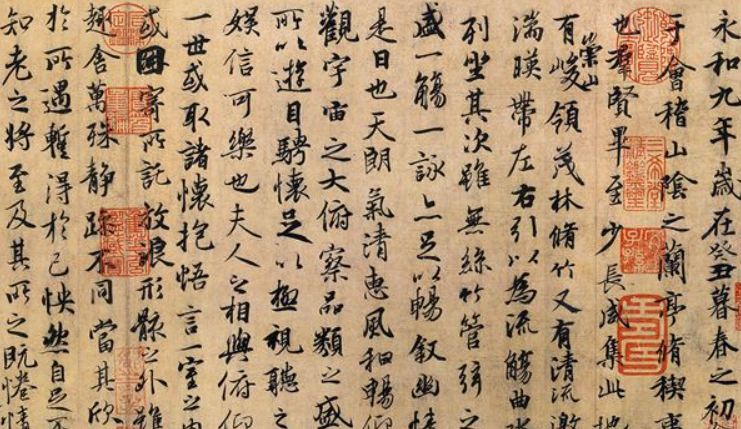 永和九年歲在癸丑暮春之初
于會稽山陰之蘭亭脩稧事
也羣賢畢至少長咸集此地
有崇山峻領茂林脩竹又有清流激
湍暎帶左右引以為流觴曲水
列坐其次雖無絲竹管弦之
盛一觴一詠亦足以暢叙幽情
是日也天朗氣清惠風和暢仰
觀宇宙之大俯察品類之盛
所以遊目騁懷足以極視聽之
娛信可樂也夫人之相與俯仰
一世或取諸懷抱悟言一室之內
或因寄所託放浪形骸之外雖
趣舍萬殊靜躁不同當其欣
於所遇暫得於己怏然自足不
知老之將至及其所之既惓情